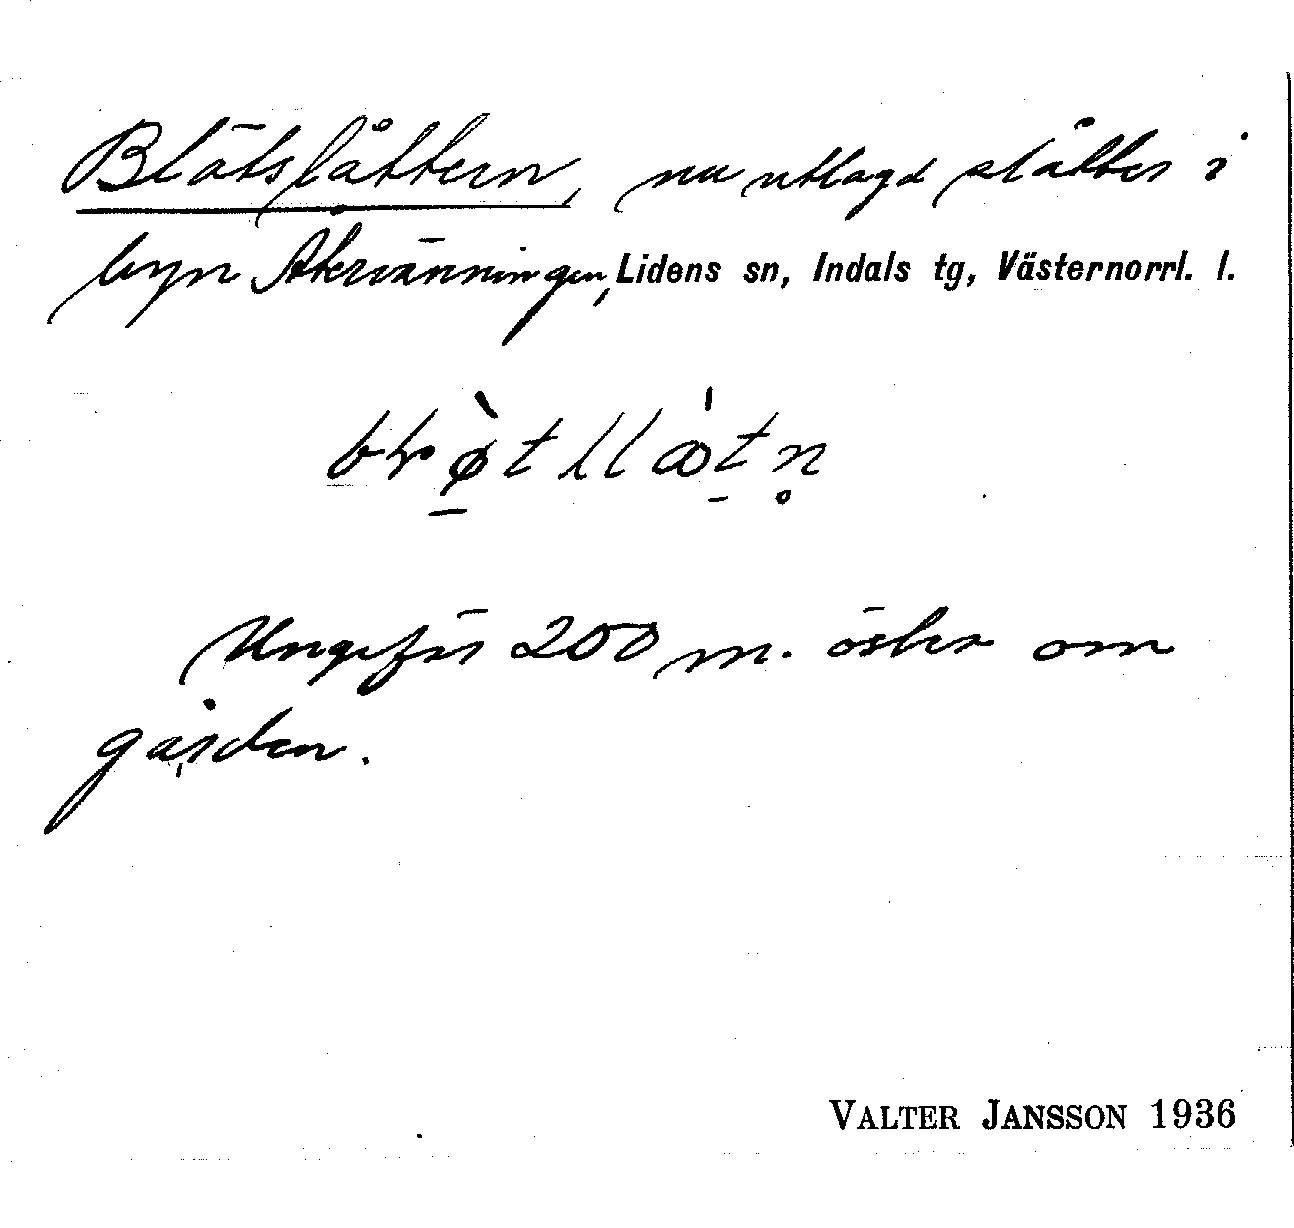 Blötslåttern, nu utlagd slåtter i
byn Åkervänningen, Lidens sn, Indals tg, Västernorrl. l.
Ungefär 200 m. öster om
gården.
VALTER JANSSON 1936